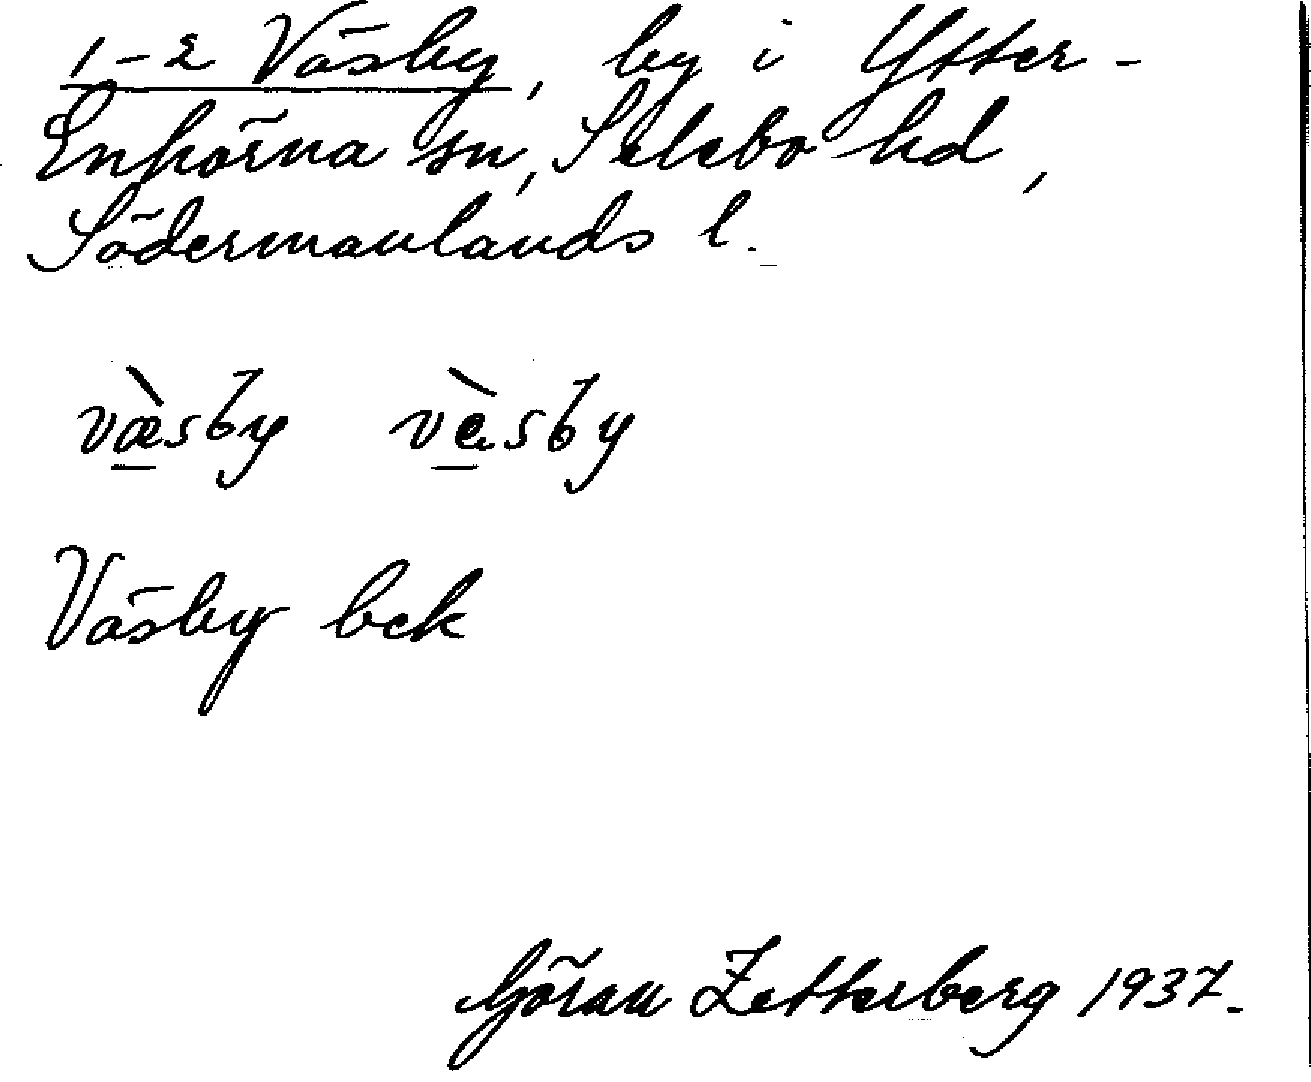 1-2 Väsby, by i Ytter-
Enhörna sn, Selebo hd,
Södermanlands l.
væ̀sby vèsby
Väsby bck
Göran Zetterberg 1937.